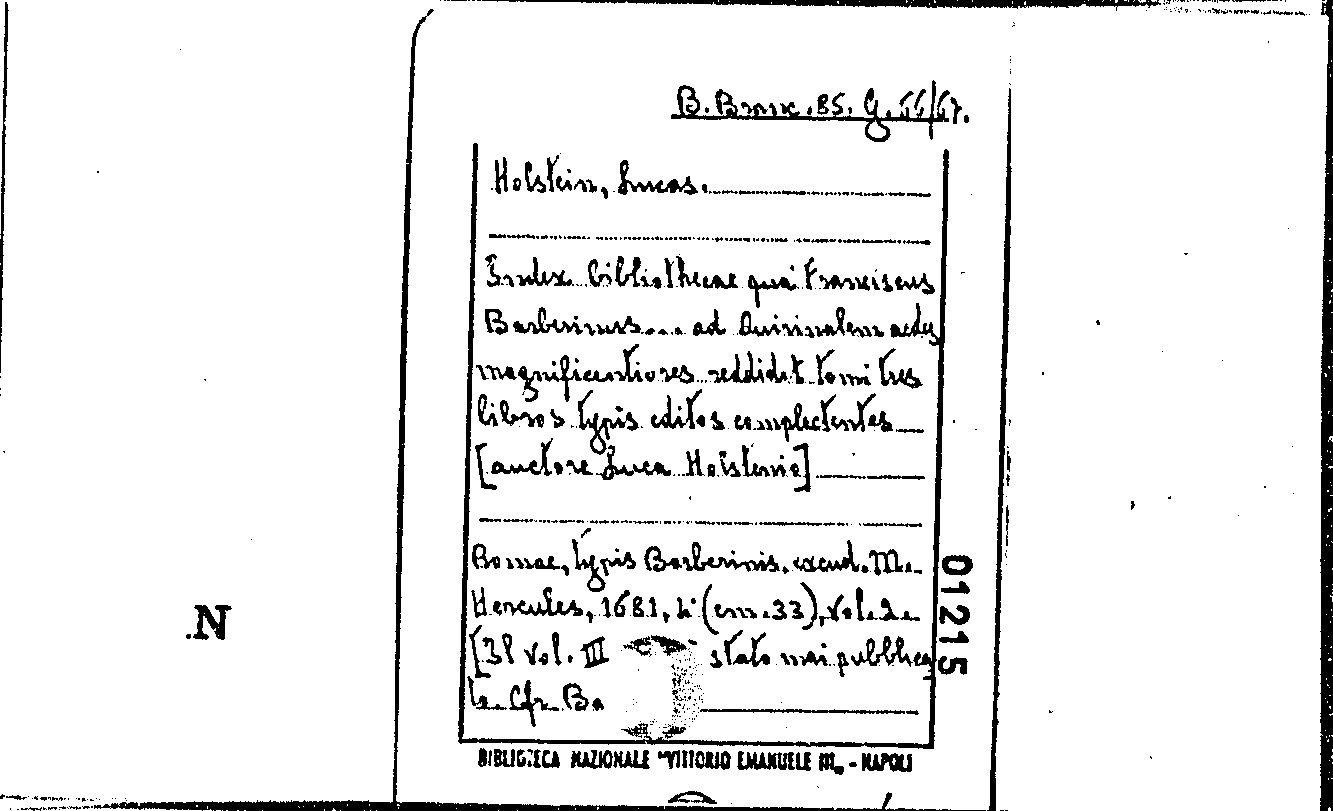 B. Branc. 85. G. 66/67.
Holstein, Lucas.
Index bibliothecae qua Franciscus
Barberinus... ad Quirinalem aedes
magnificentiores reddidit tomi tres
libros typis editos complectentes
[auctore Luca Holstenio]
Romae, typis Barberinis, excud. M.
Hercules, 1681, 4° (cm. 33), vol. 2.
[Il vol. III stato mai pubblica
to. Cfr. Ba
01215
N.
BIBLIOTECA NAZIONALE "VITTORIO EMANUELE III" - NAPOLI